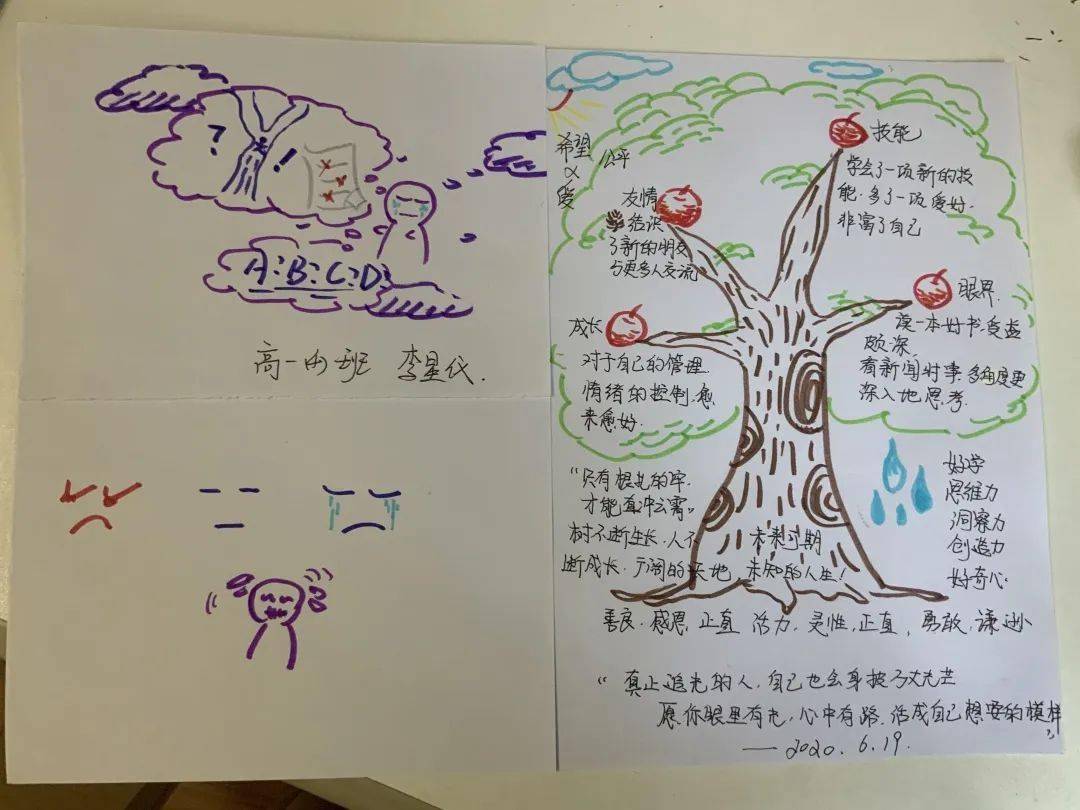 ? !
A:B:C:D
高一四班 李星代.
希望
&
爱
公平
技能
学会了一项新的技
能.多了一项爱好.
非富了自己
友情
结识
了新的朋友
与更多人交流
眼界.
读一本好书,受益
颇深.
看新闻时事.多角度更
深入地思考.
成长
对于自己的管理
情绪的控制.愈
来愈好.
“只有根扎的牢.
才能直冲云霄”
树不断生长.人不
断成长.广阔的天地
未来可期
未知的人生!
好学
思维力
洞察力
创造力
好奇心.
善良.感恩.正直 活力.灵性,正直,勇敢.谦逊
“真正追光的人.自己也会身披万丈光芒
愿你眼里有光,心中有路.活成自己想要的模样”
——2020.6.19.